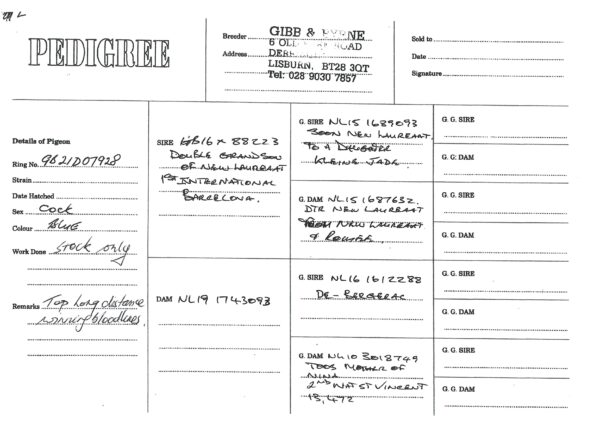 PEDIGREE
Breeder GIBB & BYRNE
Address 6 OLD ROAD
LISBURN, BT28 3QT
Tel: 028 9030 7857
Sold to
Date
Signature
Details of Pigeon
Ring No. GB21D07928
Strain
Date Hatched
Sex Cock
Colour BLUE
Work Done Stock only
Remarks Top long distance
winning bloodlines.
SIRE GB16X 88223
DOUBLE GRANDSON
OF NEW LAUREAAT
1ST INTERNATIONAL
BARCELONA.
DAM NL19 1743093
G. SIRE NL15 1689093
ZOON NEW LAUREAAT
TO A DAUGHTER
KLEINE JADE
G. DAM NL15 1687632.
DTR NEW LAUREAAT
NEW LAUREAAT
&
G. SIRE NL16 1612288
DE-BERGERAC
G. DAM NL10 3018749
TOOS MOTHER OF
NINA
2ND NAT ST VINCENT
13,472
G. G. SIRE
G. G. DAM
G. G. SIRE
G. G. DAM
G. G. SIRE
G. G. DAM
G. G. SIRE
G. G. DAM